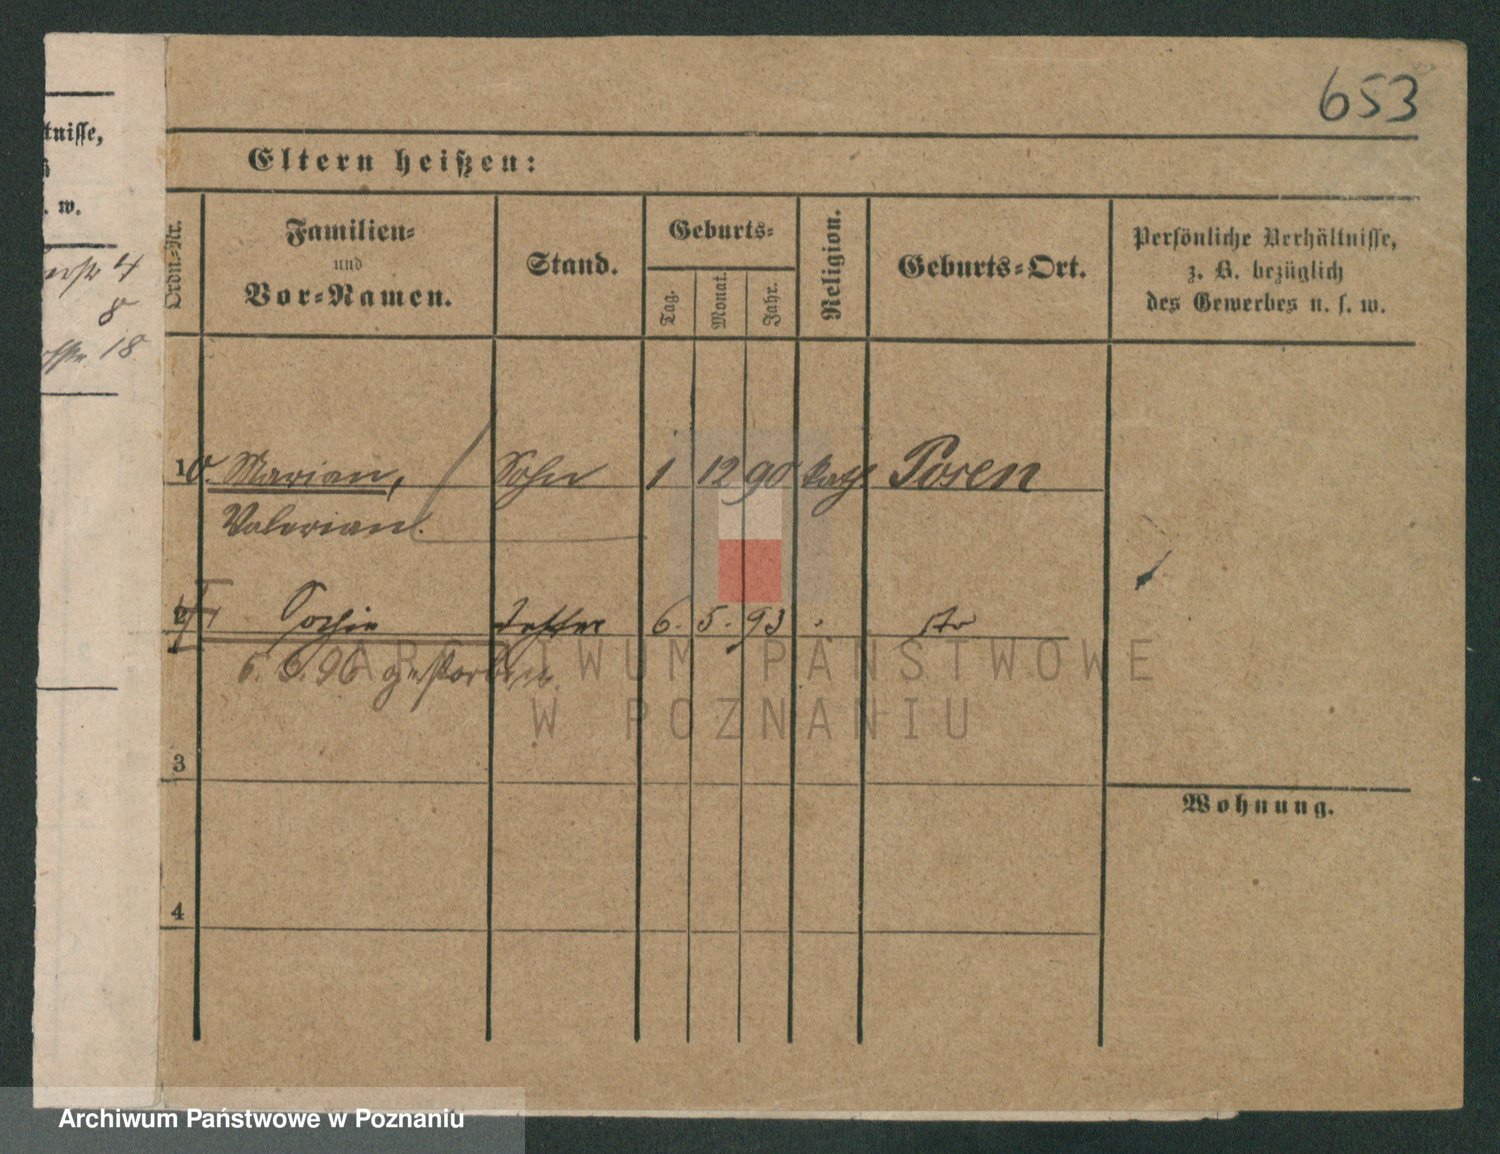 653
tnisse,
. w.
4
8
18
Eltern heißen:
Ordn.-Nr.
Familien-
und
Vor-Namen.
Stand.
Geburts-
Tag.
Monat.
Jahr.
Religion.
Geburts-Ort.
Persönliche Verhältnisse,
z. B. bezüglich
des Gewerbes u. s. w.
1 Marian, Sohn 1 12 90 kath Posen
Valerian.
2 Sophie Tochter 6. 5. 93 . dto
6. 6. 96 gestorben.
ARCHIWUM PAŃSTWOWE
W POZNANIU
3
Wohnung.
4
Archiwum Państwowe w Poznaniu